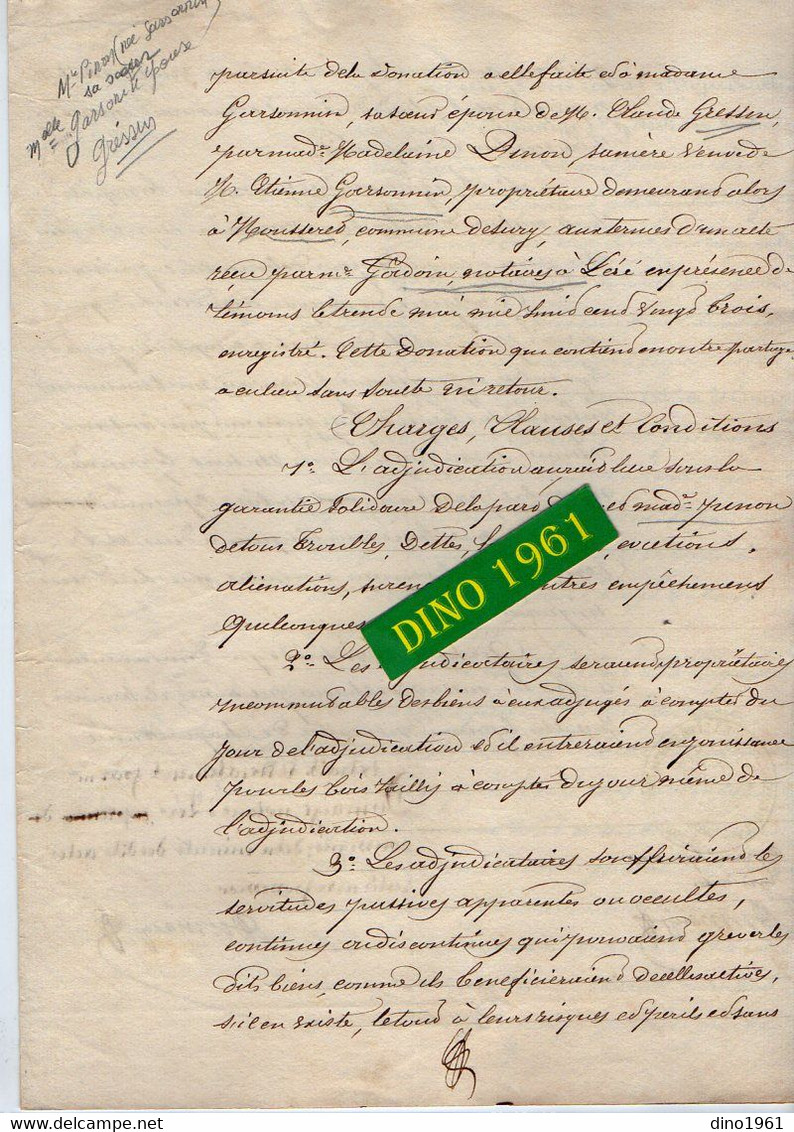 Me Pinon née Garsonnin
sa soeur
Melle Garsonnin épouse
Gressin
par suite de la Donation a elle faite et à madame
Garsonnin, sa soeur épouse de M. Claude Gressin,
par made Madelaine Pinon, sa mère veuve de
M. Etienne Garsonnin, propriétaire demeurant alors
à Moussered, commune de Sury, aux termes d'un acte
reçu par me Godoin, notaires à Léré en présence de
témoins le trente mai mil huit cent vingt trois,
enregistré. Cette Donation qui contient en outre partage
a eu lieu sans soulte ni retour.
Charges, Clauses et Conditions
1o. L'adjudication aurait lieu sous la
garantie solidaire de la part de et made Pinon
de tous troubles, Dettes, evictions,
aliénations, autres empêchemens
quelconques
2o. Les adjudicataires seraient propriétaires
incommutables des biens à eux adjugés à compter du
jour de l'adjudication et il entreraient en jouissance
pour les bois taillis à compter du jour même de
l'adjudication.
3o. Les adjudicataires souffriraient les
servitudes passives apparentes ou occultes,
continues ou discontinues qui pourraient grever les
dits biens, comme ils beneficieraient de celles actives,
s'il en existe, le tout à leurs risques et perils et sans
DINO 1961
dino1961